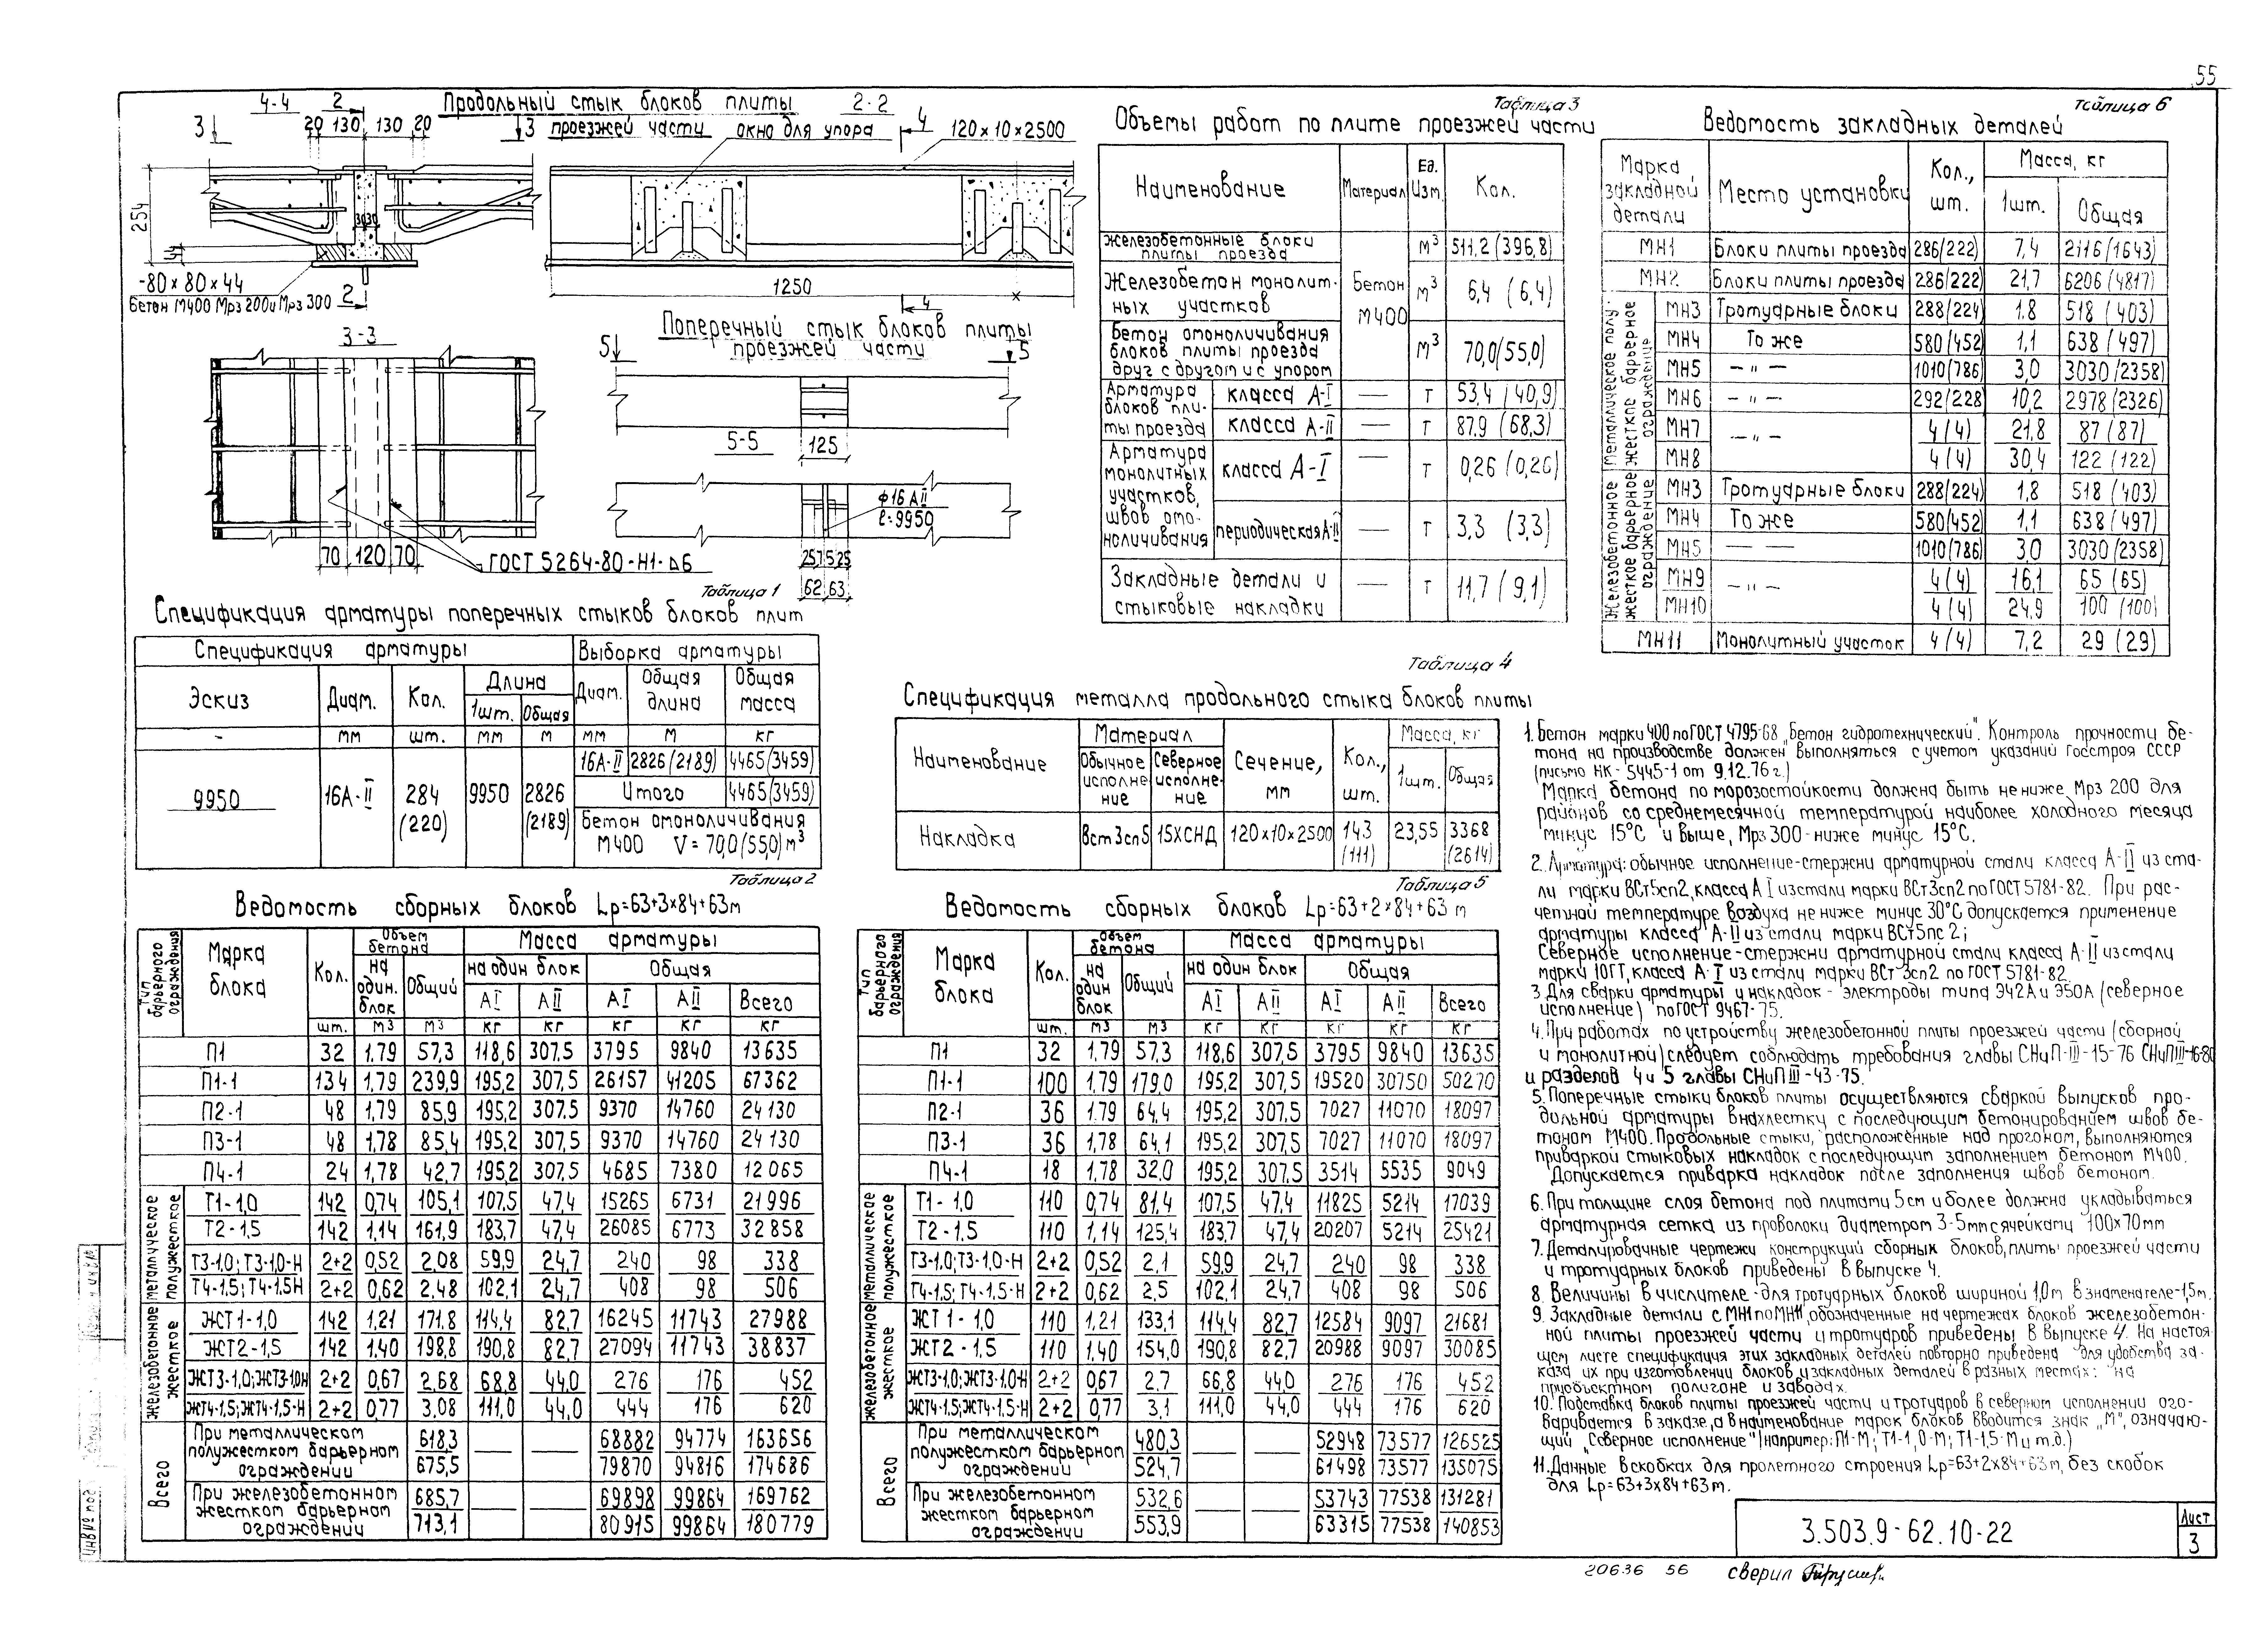 55
4-4
2
Продольный стык блоков плиты
2-2
проезжей части
3
20 130 130 20
3
окно для упора
4
120×10×2500
254
44
30 30
-80×80×44
Бетон М400 Мрз 200 и Мрз 300
2
1250
4
3-3
70 120 70
ГОСТ 5264-80-Н1-Δ6
Поперечный стык блоков плиты
проезжей части
5
5
5-5
125
ф16АII
ℓ=9950
25 75 25
62 63
Таблица 1
Спецификация арматуры поперечных стыков блоков плит
Спецификация арматуры | Выборка арматуры
Эскиз | Диам. | Кол. | Длина | Диам. | Общая длина | Общая масса
1шт. | Общая
- | мм | шт. | мм | м | мм | м | кг
9950 | 16А-II | 284 (220) | 9950 | 2826 (2189) | 16А-II | 2826(2189) | 4465(3459)
Итого | 4465(3459)
Бетон омоноличивания
М400 V=70,0(55,0)м³
Таблица 2
Ведомость сборных блоков Lр=63+3×84+63м
Тип барьерного ограждения | Марка блока | Кол. | Объем бетона | Масса арматуры
на один. блок | Общий | на один блок | Общая
АI | АII | АI | АII | Всего
шт. | м3 | м3 | кг | кг | кг | кг | кг
П1 | 32 | 1.79 | 57,3 | 118,6 | 307,5 | 3795 | 9840 | 13635
П1-1 | 134 | 1.79 | 239,9 | 195,2 | 307,5 | 26157 | 41205 | 67362
П2-1 | 48 | 1,79 | 85,9 | 195,2 | 307,5 | 9370 | 14760 | 24130
П3-1 | 48 | 1,78 | 85,4 | 195,2 | 307,5 | 9370 | 14760 | 24130
П4-1 | 24 | 1,78 | 42,7 | 195,2 | 307,5 | 4685 | 7380 | 12065
металлическое полужесткое
Т1-1,0 | 142 | 0,74 | 105,1 | 107,5 | 47,4 | 15265 | 6731 | 21996
Т2-1,5 | 142 | 1,14 | 161,9 | 183,7 | 47,4 | 26085 | 6773 | 32858
Т3-1,0; Т3-1,0-Н | 2+2 | 0,52 | 2,08 | 59,9 | 24,7 | 240 | 98 | 338
Т4-1,5; Т4-1,5Н | 2+2 | 0,62 | 2,48 | 102,1 | 24,7 | 408 | 98 | 506
железобетонное жесткое
ЖСТ1-1,0 | 142 | 1,21 | 171.8 | 114,4 | 82.7 | 16245 | 11743 | 27988
ЖСТ2-1,5 | 142 | 1.40 | 198,8 | 190,8 | 82,7 | 27094 | 11743 | 38837
ЖСТ3-1,0; ЖСТ3-1,0Н | 2+2 | 0,67 | 2,68 | 68,8 | 44,0 | 276 | 176 | 452
ЖСТ4-1,5; ЖСТ4-1,5-Н | 2+2 | 0,77 | 3,08 | 111,0 | 44,0 | 444 | 176 | 620
Всего
При металлическом полужестком барьерном ограждении | 618,3 | — | — | 68882 | 94774 | 163656
675,5 | 79870 | 94816 | 174686
При железобетонном жестком барьерном ограждении | 685,7 | — | — | 69898 | 99864 | 169762
713,1 | 80915 | 99864 | 180779
Таблица 3
Объемы работ по плите проезжей части
Наименование | Материал | Ед. Изм. | Кол.
железобетонные блоки плиты проезда | Бетон М400 | м³ | 511,2 (396,8)
Железобетон монолитных участков | м³ | 6,4 (6,4)
Бетон омоноличивания блоков плиты проезда друг с другом и с упором | м³ | 70,0(55,0)
Арматура блоков плиты проезда | класса А-I | — | т | 53,4 (40,9)
класса А-II | — | т | 87,9 (68,3)
Арматура монолитных участков, швов омоноличивания | класса А-I | — | т | 0,26 (0,26)
периодическая А-II | — | т | 3,3 (3,3)
Закладные детали и стыковые накладки | — | т | 11,7 (9,1)
Таблица 4
Спецификация металла продольного стыка блоков плиты
Наименование | Материал | Сечение, мм | Кол., шт. | Масса, кг
Обычное исполнение | Северное исполнение | 1шт. | Общая
Накладка | Вст3сп5 | 15ХСНД | 120×10×2500 | 143 (111) | 23,55 | 3368 (2614)
Таблица 5
Ведомость сборных блоков Lр=63+2×84+63 м
Тип барьерного ограждения | Марка блока | Кол. | Объем бетона | Масса арматуры
на один блок | Общий | на один блок | Общая
АI | АII | АI | АII | Всего
шт. | м3 | м3 | кг | кг | кг | кг | кг
П1 | 32 | 1,79 | 57,3 | 118,6 | 307,5 | 3795 | 9840 | 13635
П1-1 | 100 | 1.79 | 179,0 | 195,2 | 307,5 | 19520 | 30750 | 50270
П2-1 | 36 | 1.79 | 64,4 | 195,2 | 307,5 | 7027 | 11070 | 18097
П3-1 | 36 | 1,78 | 64,1 | 195,2 | 307,5 | 7027 | 11070 | 18097
П4-1 | 18 | 1,78 | 32.0 | 195,2 | 307,5 | 3514 | 5535 | 9049
металлическое полужесткое
Т1-1,0 | 110 | 0,74 | 81.4 | 107,5 | 47,4 | 11825 | 5214 | 17039
Т2-1,5 | 110 | 1,14 | 125,4 | 183,7 | 47,4 | 20207 | 5214 | 25421
Т3-1,0; Т3-1,0-Н | 2+2 | 0,52 | 2,1 | 59,9 | 24,7 | 240 | 98 | 338
Т4-1,5; Т4-1,5-Н | 2+2 | 0,62 | 2,5 | 102,1 | 24,7 | 408 | 98 | 506
железобетонное жесткое
ЖСТ1-1,0 | 110 | 1,21 | 133,1 | 114,4 | 82,7 | 12584 | 9097 | 21681
ЖСТ2-1,5 | 110 | 1.40 | 154,0 | 190,8 | 82,7 | 20988 | 9097 | 30085
ЖСТ3-1,0; ЖСТ3-1,0-Н | 2+2 | 0,67 | 2,7 | 66,8 | 44,0 | 276 | 176 | 452
ЖСТ4-1,5; ЖСТ4-1,5-Н | 2+2 | 0,77 | 3,1 | 111,0 | 44,0 | 444 | 176 | 620
Всего
При металлическом полужестком барьерном ограждении | 480,3 | — | — | 52948 | 73577 | 126525
524,7 | 61498 | 73577 | 135075
При железобетонном жестком барьерном ограждении | 532,6 | — | — | 53743 | 77538 | 131281
553,9 | 63315 | 77538 | 140853
Таблица 6
Ведомость закладных деталей
Марка закладной детали | Место установки | Кол., шт. | Масса, кг
1шт. | Общая
МН1 | Блоки плиты проезда | 286(222) | 7,4 | 2116(1643)
МН2 | Блоки плиты проезда | 286(222) | 21,7 | 6206(4817)
Металлическое полужесткое барьерное ограждение
МН3 | Тротуарные блоки | 288(224) | 1.8 | 518 (403)
МН4 | То же | 580(452) | 1,1 | 638 (497)
МН5 | — " — | 1010(786) | 3,0 | 3030(2358)
МН6 | — " — | 292(228) | 10,2 | 2978(2326)
МН7 | — " — | 4(4) | 21,8 | 87(87)
МН8 | 4(4) | 30,4 | 122(122)
Железобетонное жесткое барьерное ограждение
МН3 | Тротуарные блоки | 288(224) | 1,8 | 518 (403)
МН4 | То же | 580(452) | 1,1 | 638 (497)
МН5 | — — | 1010(786) | 3,0 | 3030(2358)
МН9 | — " — | 4(4) | 16,1 | 65(65)
МН10 | 4(4) | 24,9 | 100 (100)
МН11 | Монолитный участок | 4(4) | 7,2 | 29 (29)
1. Бетон марки 400 по ГОСТ 4795-68 „Бетон гидротехнический". Контроль прочности бе-
тона на производстве должен выполняться с учетом указаний Госстроя СССР
(письмо НК-5445-1 от 9.12.76г.)
Марка бетона по морозостойкости должна быть не ниже Мрз 200 для
районов со среднемесячной температурой наиболее холодного месяца
минус 15°С и выше, Мрз 300-ниже минус 15°С.
2. Арматура: обычное исполнение-стержни арматурной стали класса А-II из ста-
ли марки ВСт5сп2, класса АI из стали марки ВСт3сп2 по ГОСТ 5781-82. При рас-
четной температуре воздуха не ниже минус 30°С допускается применение
арматуры класса А-II из стали марки ВСт5пс2;
Северное исполнение-стержни арматурной стали класса А-II из стали
марки 10ГТ, класса А-I из стали марки ВСт3сп2 по ГОСТ 5781-82
3 Для сварки арматуры и накладок - электроды типа Э42А и Э50А (северное
исполнение) по ГОСТ 9467-75.
4. При работах по устройству железобетонной плиты проезжей части (сборной
и монолитной) следует соблюдать требования главы СНиП-III-15-76 СНиПIII-16-80
и разделов 4 и 5 главы СНиПIII-43-75.
5. Поперечные стыки блоков плиты осуществляются сваркой выпусков про-
дольной арматуры внахлестку с последующим бетонированием швов бе-
тоном М400. Продольные стыки, расположенные над прогоном, выполняются
приваркой стыковых накладок с последующим заполнением бетоном М400.
Допускается приварка накладок после заполнения швов бетоном.
6. При толщине слоя бетона под плитами 5см и более должна укладываться
арматурная сетка из проволоки диаметром 3-5мм с ячейками 100×70мм
7. Деталировачные чертежи конструкций сборных блоков, плиты проезжей части
и тротуарных блоков приведены в выпуске 4.
8. Величины в числителе-для тротуарных блоков шириной 1,0м в знаменателе-1,5м.
9. Закладные детали с МН1 по МН11, обозначенные на чертежах блоков железобетон-
ной плиты проезжей части и тротуаров приведены в выпуске 4. На настоя-
щем листе спецификация этих закладных деталей повторно приведена для удобства за-
каза их при изготовлении блоков и закладных деталей в разных местах: на
приобъектном полигоне и заводах.
10. Поставка блоков плиты проезжей части и тротуаров в северном исполнении ого-
варивается в заказе, а в наименование марок блоков вводится знак „М", означаю-
щий „Северное исполнение" (например: П1-М; Т1-1,0-М; Т1-1,5-М и т.д.)
11. Данные в скобках для пролетного строения Lр=63+2×84+63м, без скобок
для Lр=63+3×84+63м.
3.503.9-62.10-22
Лист
3
20636 56
сверил